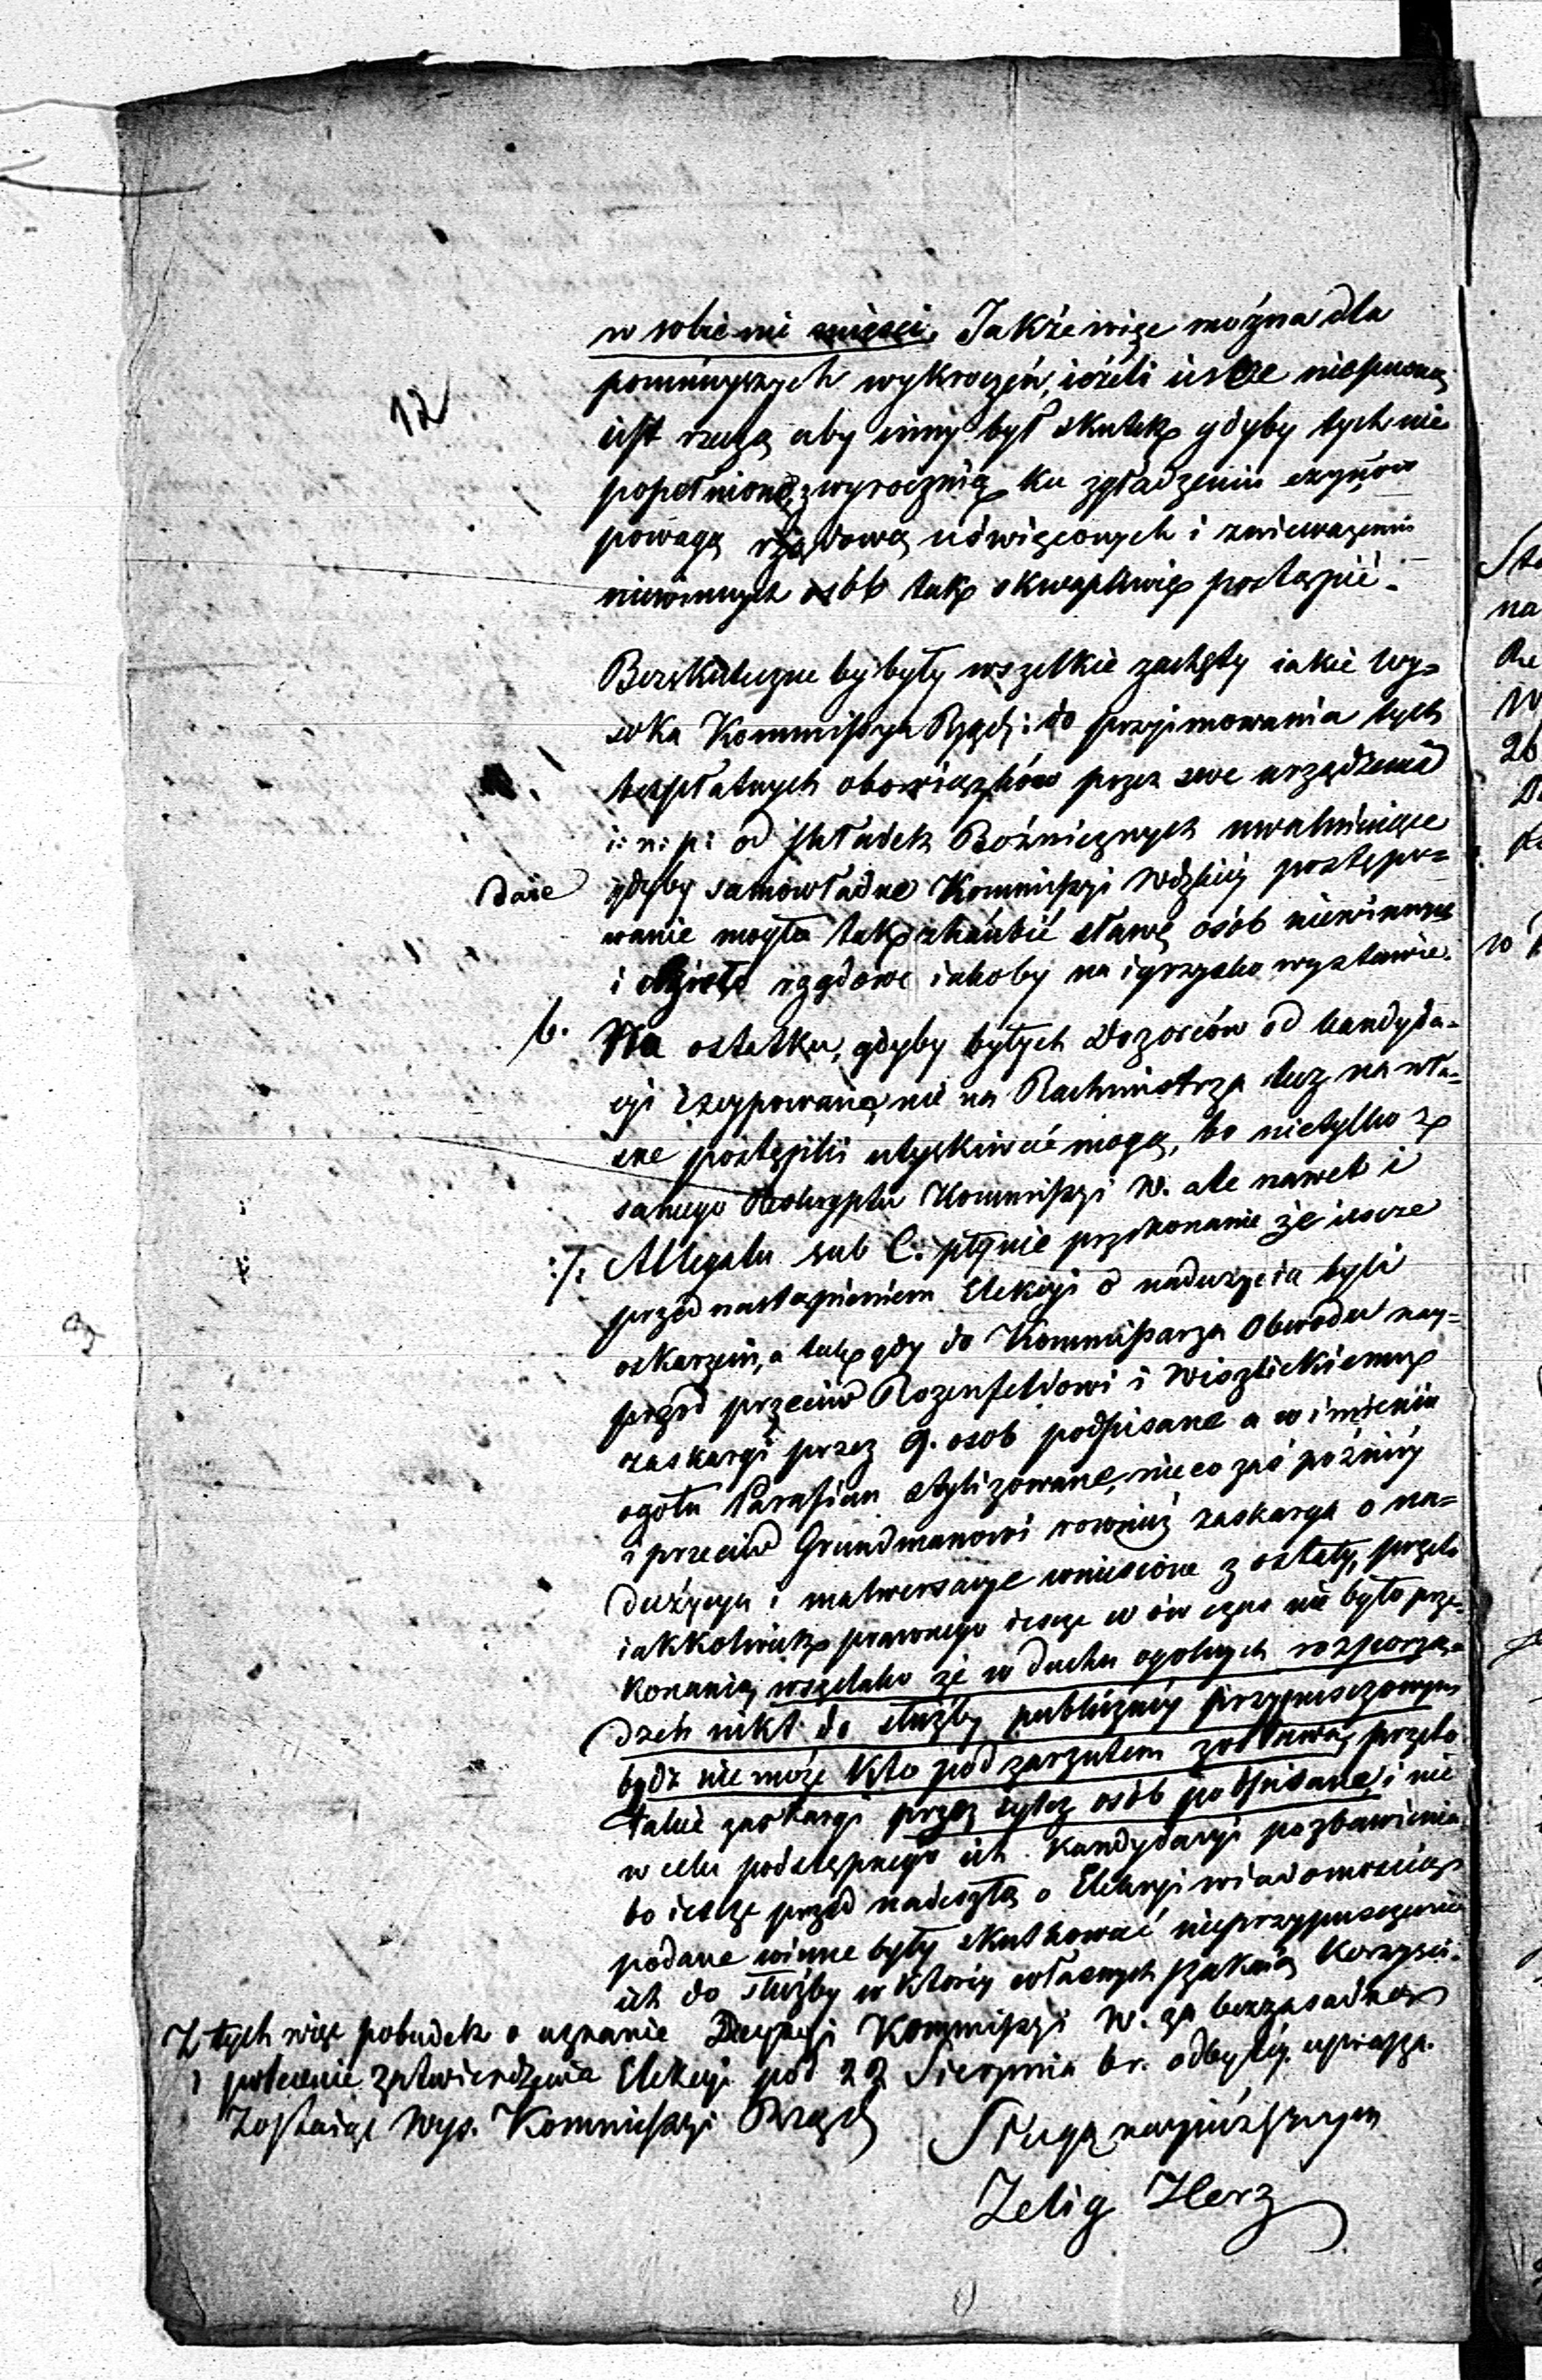 12
w sobie nie mieści. Jakże więc można dla
pomnieyszych wykroczeń, ieżeli ieszcze niepewną
iest rzeczą aby inny był skutek gdyby tych nie
popełniono, z wyrocznią ku zgładzeniu czynów
powagą rządową uświęconych i znieważeniu
niewinnych osób tak skwapliwie postąpić.
Bezskuteczne by były wszelkie zachęty iakie Wy=
soka Kommissya Rządz: do przyimowania tych
bezpłatnych obowiązków przez swe urządzenia
i: n: p: od składek Bożnicznych uwalniaiące
daie
gdyby samowładne Kommissyi Wdzkiey postępo=
wanie mogło tak zhańbić sławę osób niewinnych
i dzieło rządowe iakoby na igrzysko wystawić.
b. Na ostatku, gdyby byłych Dozorców od kandyda=
cyi excypowano, nie na Rachmistrza lecz na wła=
sne postępki utyskiwać mogą, bo nietylko z
samego Reskryptu Kommissyi W. ale nawet i
:/: Allegatu sub C. płynie przekonanie że ieszcze
przed nastąpieniem Elekcyi o nadużycia byli
oskarżeni, a tak gdy do Kommissarza Obwodu nay=
przód przeciw Rozenfeldowi i Wiszlickiemu
zaskargi przez 9. osob podpisane a w imieniu
ogołu Parafian stylizowane, nieco zaś poźniey
i przeciw Grundmanowi rownież zaskarga o na=
dużycya i malwersacye wniesione zostały, przeto
iakkolwiek prawnego ieszcze w ów czas nie było prze=
konania, wszelako że w duchu ogolnych rozporzą=
dzeń nikt do służby publiczney przypuszczonym
bydź nie może kto pod zarzutem zostawa, przeto
takie zaskargi przez tyluż osób podpisane, i nie
w celu podstępnego ich kandydacyi pozbawienia
bo ieszcze przed nadeszłą o Elekcyi wiadomością
podane winne były skutkować nieprzypuszczenie
ich do służby w ktorey własnych szukaią korzyści.
Z tych więc pobudek o uznanie Decyzyi Kommissyi W. za bezzasadną
i polecenie zatwierdzenia Elekcyi pod 22 Sierpnia br. odbytey uprasza.
Zostaiąc Wys. Kommissyi Rządz
Sługą nayniższym
Zelig Herz